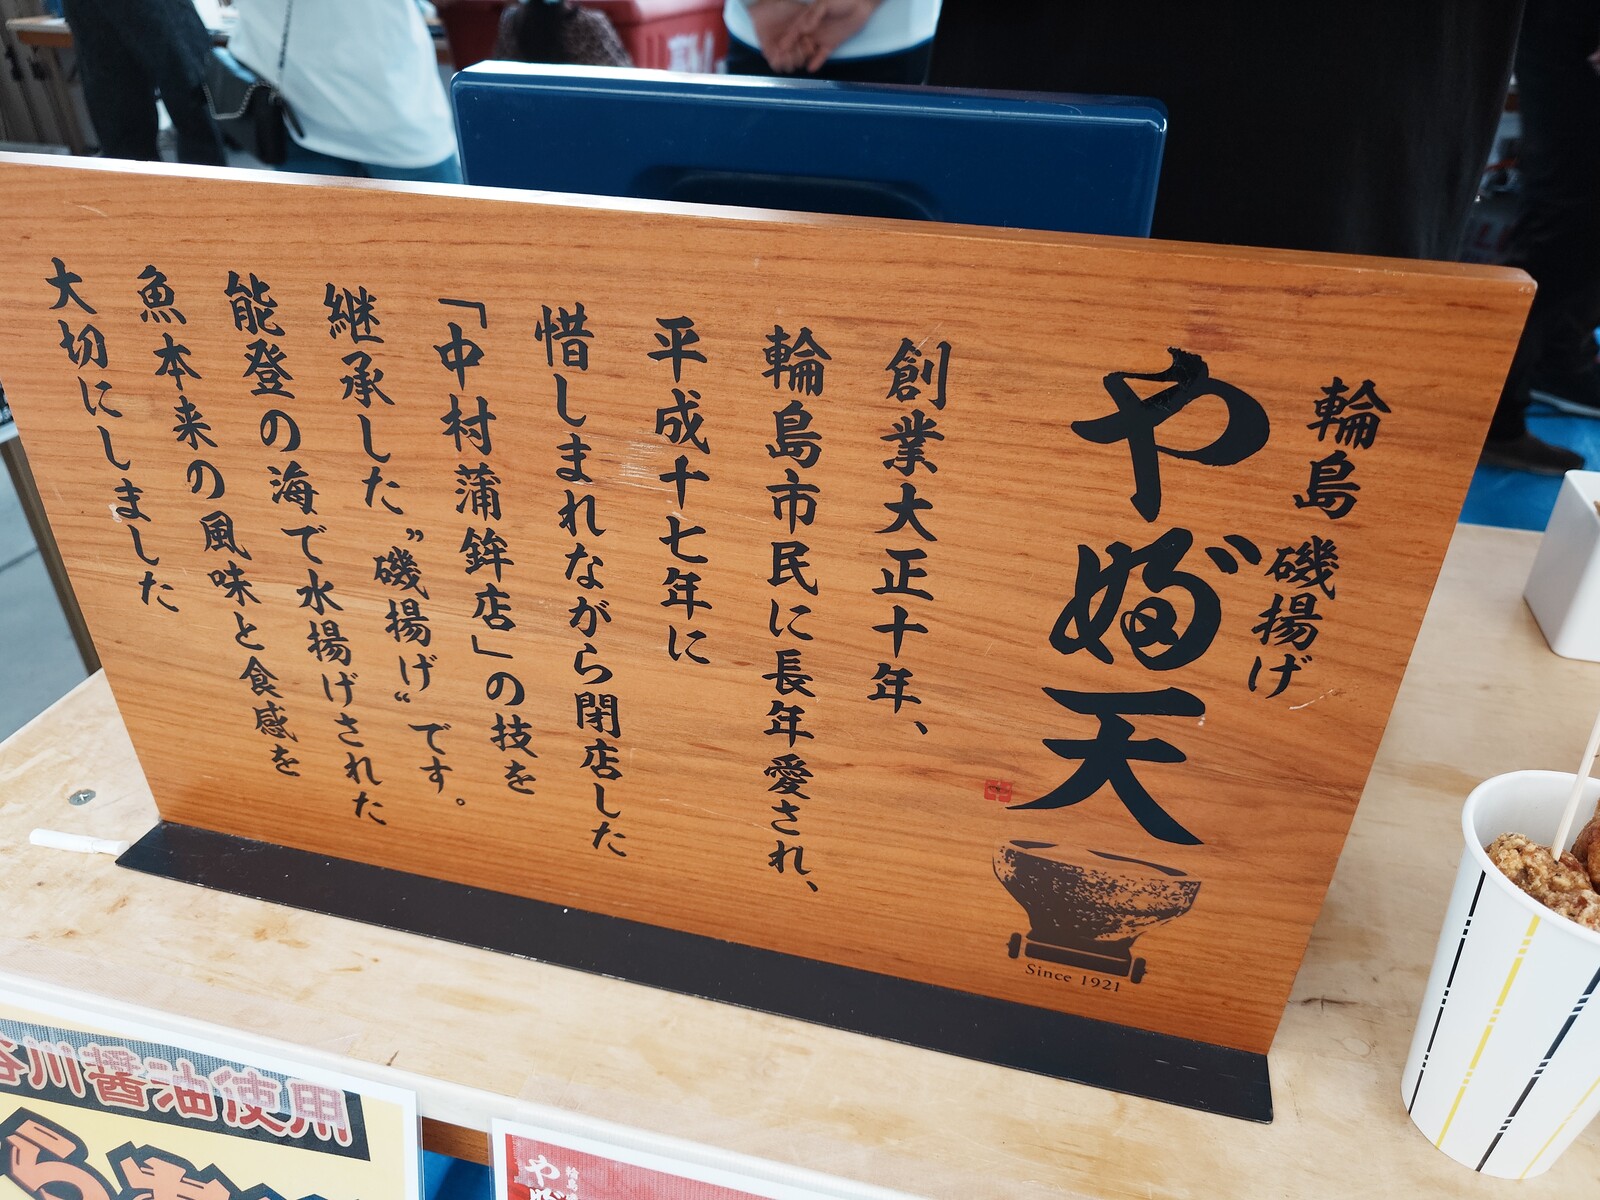 輪島 磯揚げ
やぶ天
Since 1921
創業大正十年、
輪島市民に長年愛され、
平成十七年に
惜しまれながら閉店した
「中村蒲鉾店」の技を
継承した〝磯揚げ〟です。
能登の海で水揚げされた
魚本来の風味と食感を
大切にしました
谷川醬油使用